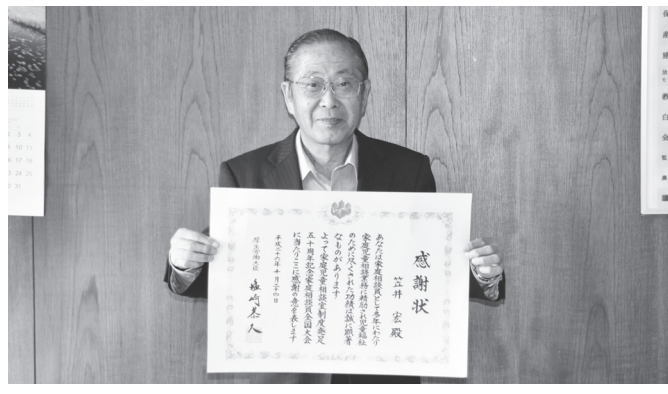 感謝状
笠井 宏 殿
あなたは家庭相談員として多年にわたり
家庭児童相談業務に精励され児童福祉
のために尽くされた功績は誠に顕著
なものがあります
よって家庭児童相談室制度発足
五十周年記念家庭相談員全国大会
に当たりここに感謝の意を表します
平成二十六年十月二十四日
厚生労働大臣 塩崎恭久